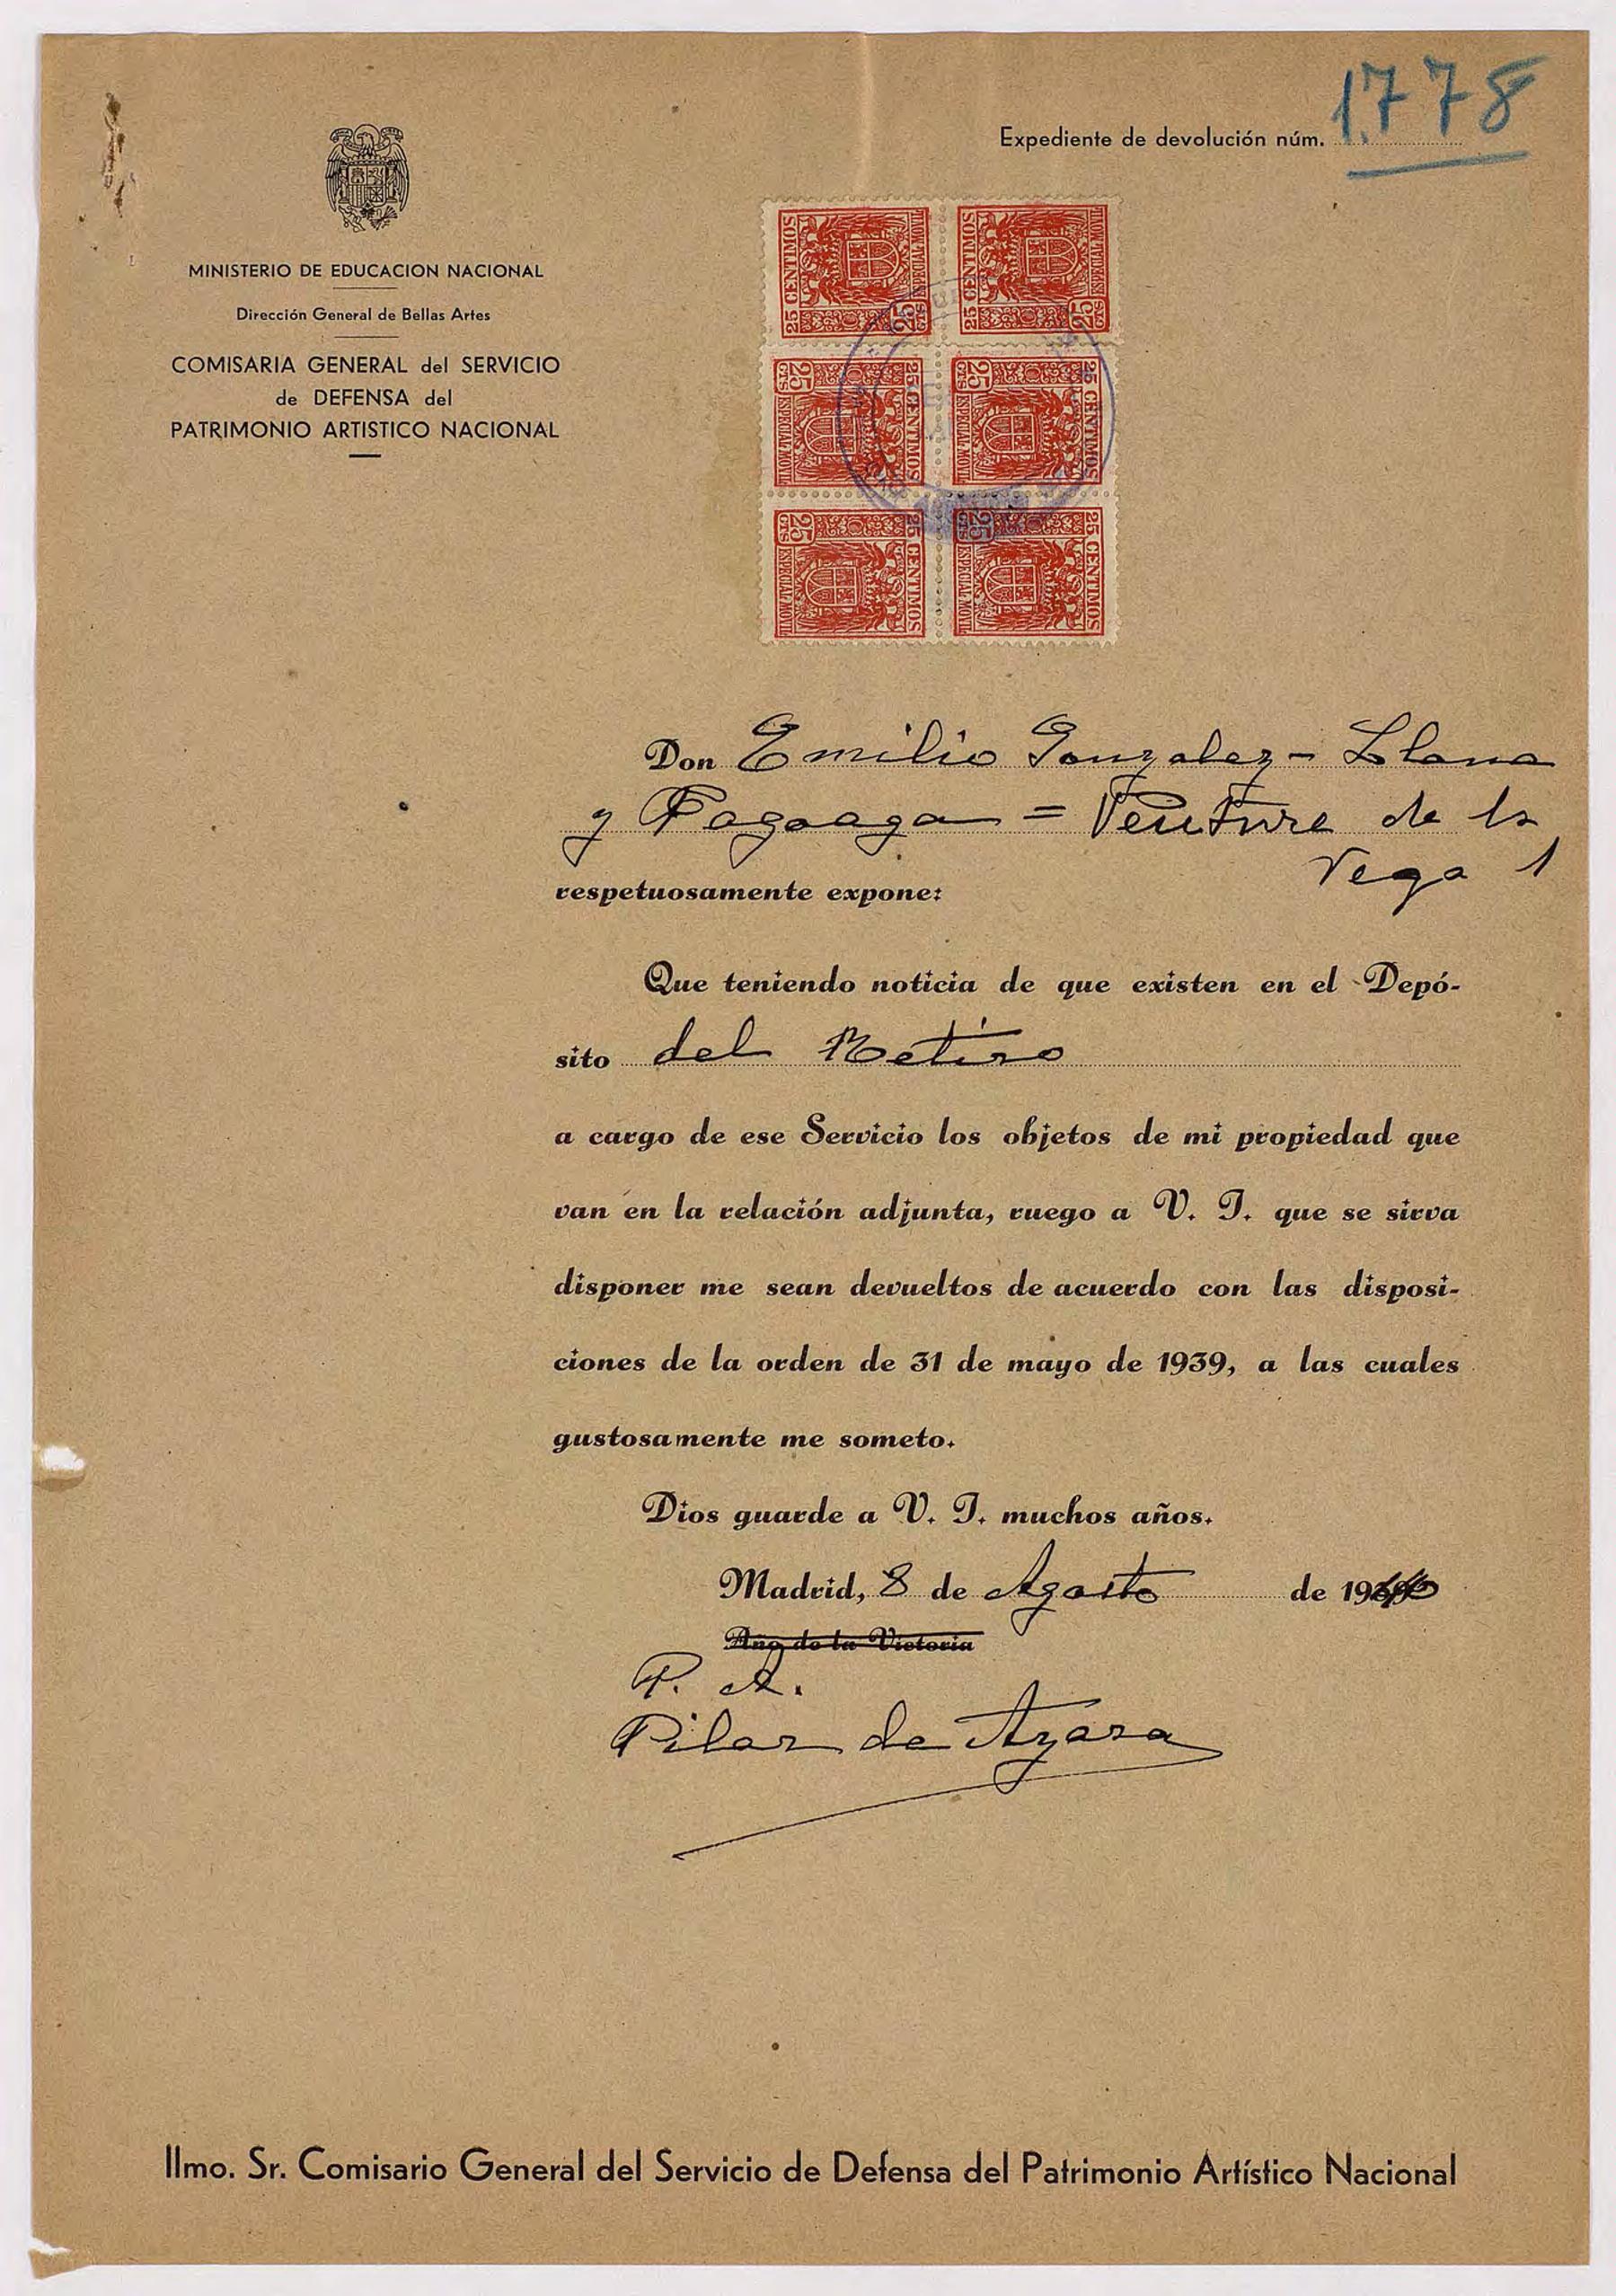 Expediente de devolución núm. 1.778
MINISTERIO DE EDUCACION NACIONAL
Dirección General de Bellas Artes
COMISARIA GENERAL del SERVICIO
de DEFENSA del
PATRIMONIO ARTISTICO NACIONAL
25 CENTIMOS 25 CTS ESPECIAL MOVIL
25 CENTIMOS 25 CTS ESPECIAL MOVIL
25 CTS 25 CENTIMOS ESPECIAL MOVIL
25 CTS 25 CENTIMOS ESPECIAL MOVIL
25 CTS 25 CENTIMOS ESPECIAL MOVIL
25 CTS 25 CENTIMOS ESPECIAL MOVIL
Don Emilio Gonzalez - Llana
y Fagoaga = Ventura de la
Vega 1
respetuosamente expone:
Que teniendo noticia de que existen en el Depó-
sito del Retiro
a cargo de ese Servicio los objetos de mi propiedad que
van en la relación adjunta, ruego a V. I. que se sirva
disponer me sean devueltos de acuerdo con las disposi-
ciones de la orden de 31 de mayo de 1939, a las cuales
gustosamente me someto.
Dios guarde a V. I. muchos años.
Madrid, 8 de Agosto de 1940
Año de la Victoria
P. A.
Pilar de Azara
Ilmo. Sr. Comisario General del Servicio de Defensa del Patrimonio Artístico Nacional